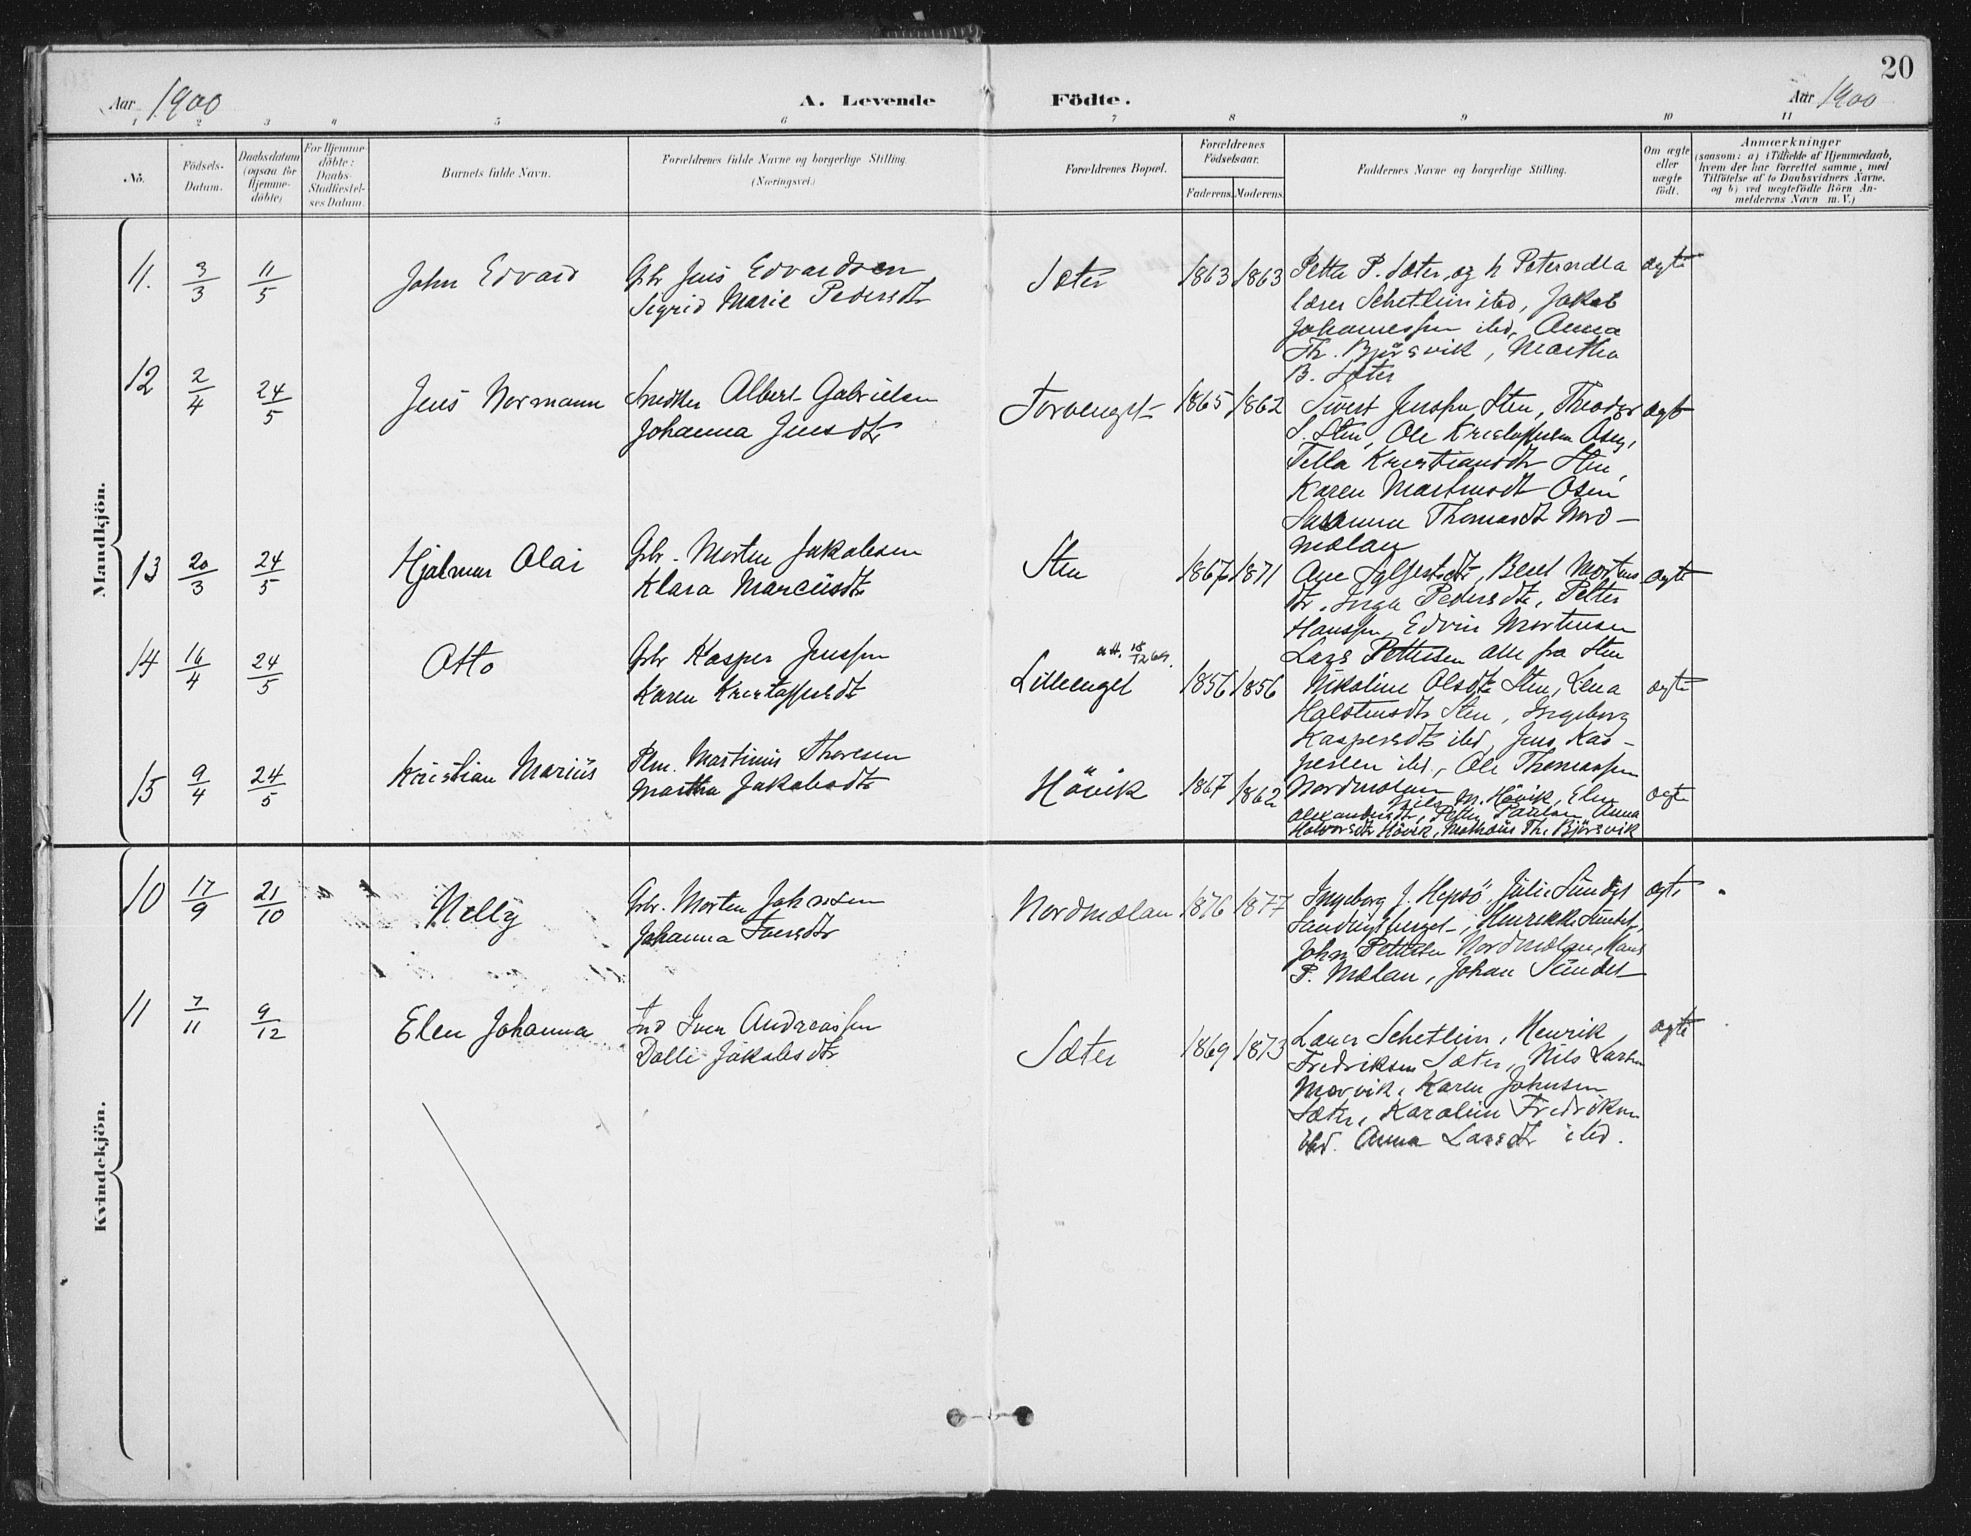 20
Aar 1900
A. Levende Födte.
Aar 1900
1 2 3 4 5 6 7 8 9 10 11
No.
Födsels-
Datum.
Daabsdatum
(ogsaa for
Hjemme-
döbte)
For Hjemme-
döbte:
Daabs-
Stadfæstel-
ses Datum.
Barnets fulde Navn.
Forældrenes fulde Navne og borgerlige Stilling.
(Næringsvei.)
Forældrenes Bopæl.
Forældrenes
Födselsaar.
Faderens. Moderens.
Faddernes Navne og borgerlige Stilling.
Om ægte
eller
uægte
födt.
Anmærkninger
(saasom: a) i Tilfælde af Hjemmedaab,
hvem der har forrettet samme, med
Tilföielse af to Daabsvidners Navne.
og b) ved uægtefödte Börn An-
melderens Navn m. V.)
Mandkjön.
11. 3/3 11/5 John Edvard
Gbr Jens Edvardsen
Sigrid Marie Pedersdtr
Sæter 1863 1863
Petta P. Sæter, og h Peternella
lærer Schetlein ibd, Jakob
Johannessen ibd, Anna
Th. Bjørsvik, Martha
B. Sæter
ægte
12 2/4 24/5 Jens Normann
Snedker Albert Gabrielsen
Johanna Jensdtr
Torvenget 1865 1862
Sivert Jenssen Sten, Theodor
S. Sten, Ole Kristoffersen Osen,
Tella Kristiansdtr Sten,
Karen Martinsdt Osen
Susanna Thomasdt Nord-
mælan
ægte
13 20/3 24/5 Hjalmar Olai
Gbr. Morten Jakobsen
Klara Marcusdtr
Sten 1867 1871
Ane Sylfestsdtr, Berit Mortens
dtr, Inga Pedersdtr, Petter
Hanssen, Edvin Mortensen
Lars Pettersen alle fra Sten
ægte
14 16/4 24/5 Otto
Gbr Kasper Jenssen
Karen Kristoffersdt
Lilleenget 1856 1856
Nikoline Olsdtr Sten, Lena
Halstensdtr Sten, Ingeborg
Kaspersdtr ibd, Jens Kas-
persen ibd, Ole Thomassen
Nordmælan
ægte
15 9/4 24/5 Kristian Marius
Plm. Martinus Thoresen
Martha Jakobsdtr
Hövik 1867 1862
Nils M. Hövik, Elen
Alexandersdtr, Petter Paulsen, Anna
Halvorsdtr Hövik, Mathæus Th. Bjørsvik
ægte
Kvindekjön.
10 17/9 21/10 Nelly
Gbr. Morten Johnsen
Johanna Iversdtr
Nordmælan 1876 1877
Ingeborg J. Hepsö, Julie Sundet
Henrikke Sundet,
John Pettersen Nordmælan, Hans
P. Mælan, Johan Sundet
ægte
11 7/11 9/12 Elen Johanna
Ind Iver Andreassen
Dolli Jakobsdtr
Sæter 1869 1873
Lærer Schetlein, Henrik
Fredriksen Sæter, Nils Larsen
Morvik, Karen Johnsen
Sæter, Karolina Fredriksen
ibd. Anna Larsdtr ibd.
ægte